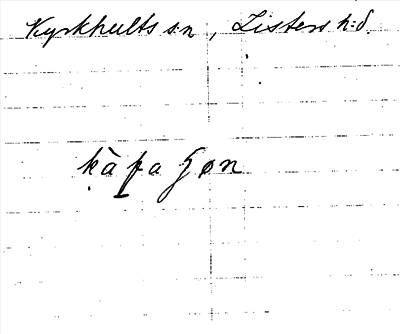 Kyrkhults s:n, Listers h:d.
kàpa gøn